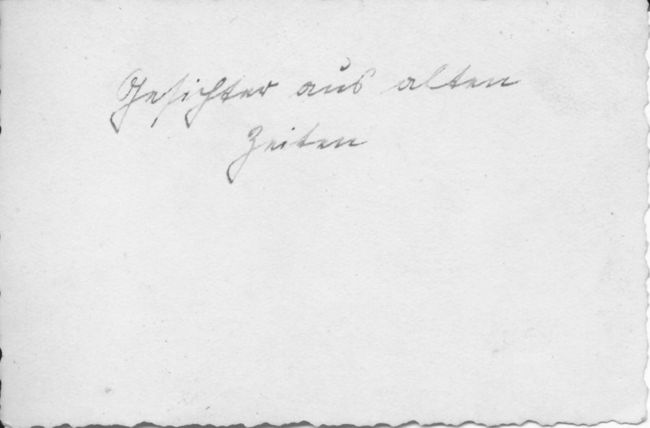 Gesichter aus alten
Zeiten